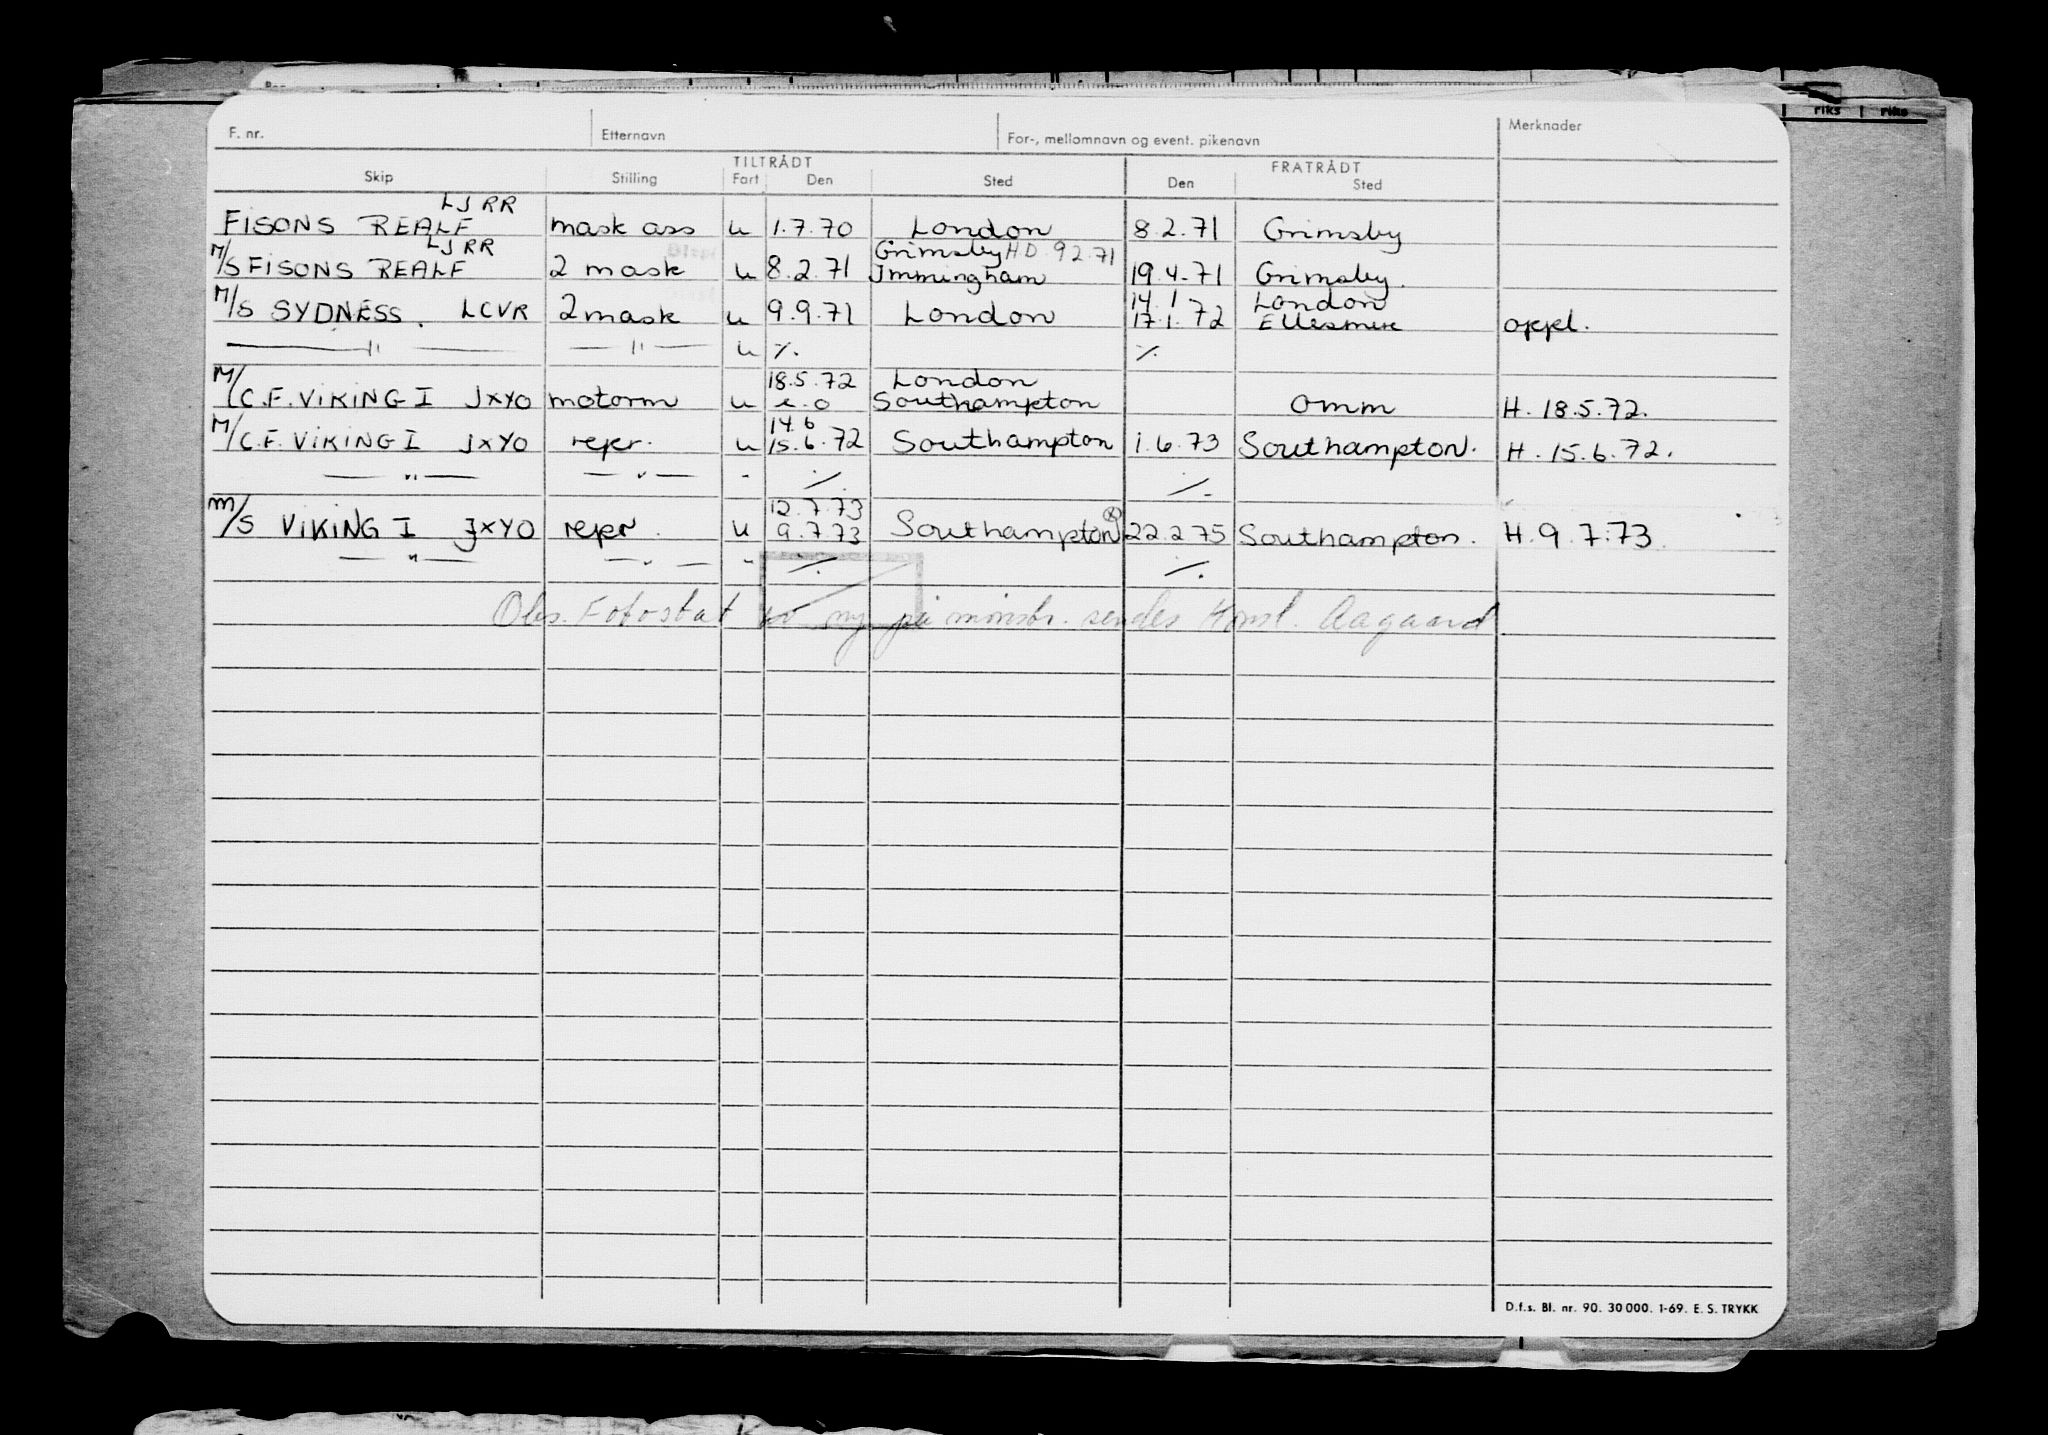 F. nr. Etternavn For-, mellomnavn og event. pikenavn Merknader
TILTRÅDT FRATRÅDT
Skip Stilling Fart Den Sted Den Sted
riks riks
LJRR
FISONS REALF mask ass u 1.7.70 London 8.2.71 Grimsby
LJRR Grimsby H.D. 9 2.71
M/S FISONS REALF 2 mask u 8.2.71 Immingham 19.4.71 Grimsby.
14.1 London
M/S SYDNESS. LCVR 2 mask u 9.9.71 London 17.1.72 Ellesmere oppl.
—〃— —〃— u ٪. ٪
18.5.72 London
M/C.F. VIKING I JXYO motorm u e.o Southampton Omm H. 18.5.72.
14.6
M/C.F. VIKING I JXYO repr. u 15.6.72 Southampton 1.6.73 Southampton. H. 15.6.72.
—〃— —〃— - ٪. ٪.
12.7.73
M/S VIKING I JXYO repr. u 9.7.73 Southampton (x) 22.2.75 Southampton. H. 9.7.73.
—〃— —〃— 〃 ٪. ٪.
Obs. Fotostat av ny på mønstr. sendes Aagaard
D.f.s. Bl. nr. 90. 30 000. 1-69. E. S. TRYKK